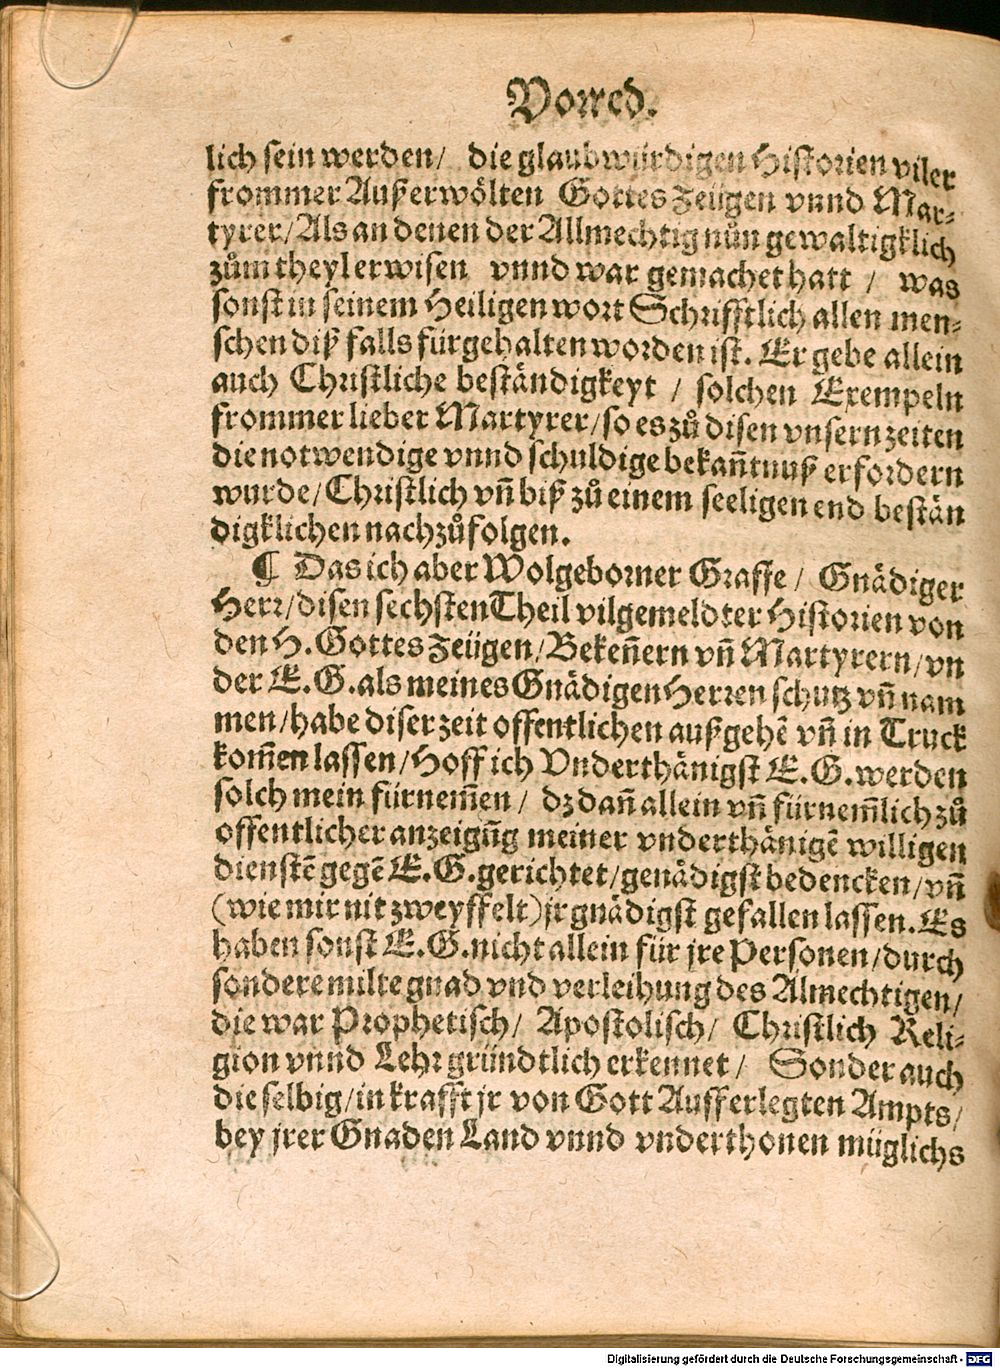 Vorred.
lich sein werden/ die glaubwürdigen Historien viler
frommer Außerwölten Gottes Zeügen vnnd Mar-
tyrer/ Als an denen der Allmechtig nůn gewaltigklich
zům theyl erwisen vnnd war gemachet hatt / was
sonst in seinem Heiligen wort Schrifftlich allen men-
schen diß falls fürgehalten worden ist. Er gebe allein
auch Christliche beständigkeyt / solchen Exempeln
frommer lieber Martyrer/ so es zů disen vnsern zeiten
die notwendige vnnd schuldige bekañtnuß erfordern
wurde/ Christlich vñ biß zů einem seeligen end bestän
digklichen nachzůfolgen.
¶ Das ich aber Wolgeborner Graffe / Gnädiger
Herr/ disen sechsten Theil vilgemeldter Historien von
den H. Gottes Zeügen/ Bekeñern vñ Martyrern/ vn
der E. G. als meines Gnädigen Herren schutz vñ nam
men/ habe diser zeit offentlichen außgehẽ vñ in Truck
kom̃en lassen/ Hoff ich Vnderthänigst E. G. werden
solch mein fürnem̃en / dz dañ allein vñ fürnem̃lich zů
offentlicher anzeigũg meiner vnderthänigẽ willigen
dienstẽ gegẽ E. G. gerichtet/ genädigst bedencken/ vñ
(wie mir nit zweyffelt) jr gnädigst gefallen lassen. Es
haben sonst E. G. nicht allein für jre Personen/ durch
sondere milte gnad vnd verleihung des Almechtigen/
die war Prophetisch/ Apostolisch/ Christlich Reli-
gion vnnd Lehr gründtlich erkennet / Sonder auch
die selbig/ in krafft jr von Gott Aufferlegten Ampts/
bey jrer Gnaden Land vnnd vnderthonen müglichs
Digitalisierung gefördert durch die Deutsche Forschungsgemeinschaft - DFG